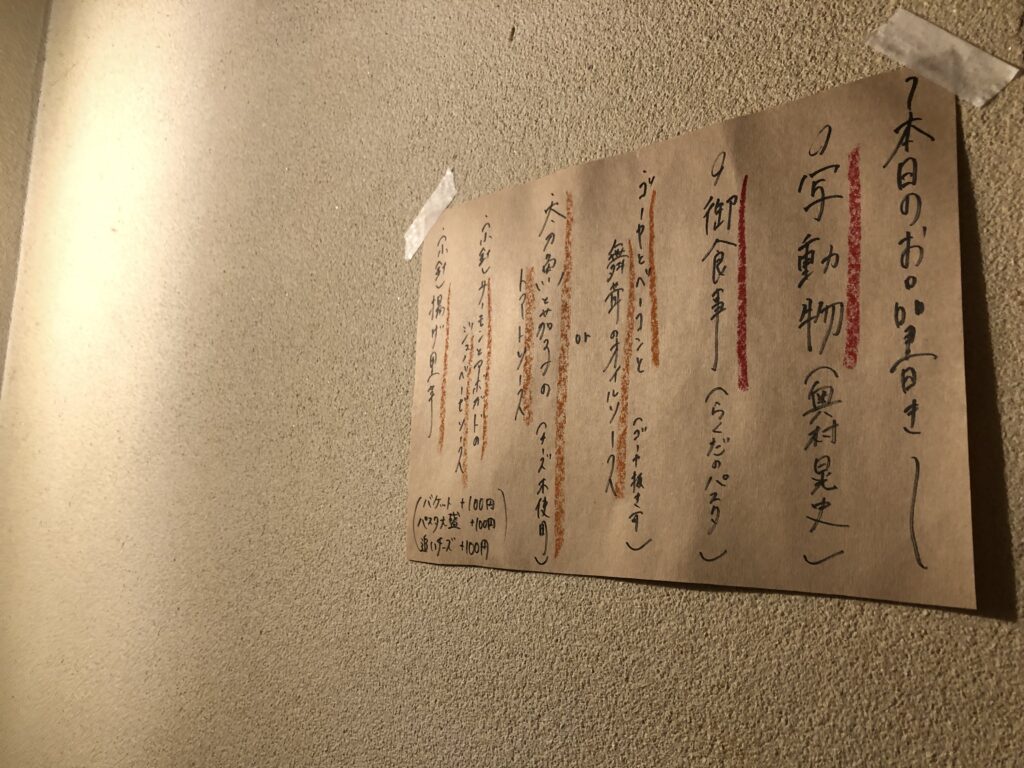 本日のお品書き
写動物(奥村晃史)
御食事(らくだのパスタ)
ゴーヤとベーコンと
舞茸のオイルソース(ツナ抜き可)
or
太刀魚とセロリの
トマトソース(チーズ不使用)
前割 サーモンとアボカドの
ジェノベーゼソース
揚げ里芋
(バケット +100円
パスタ大盛 +100円
追いチーズ +100円)